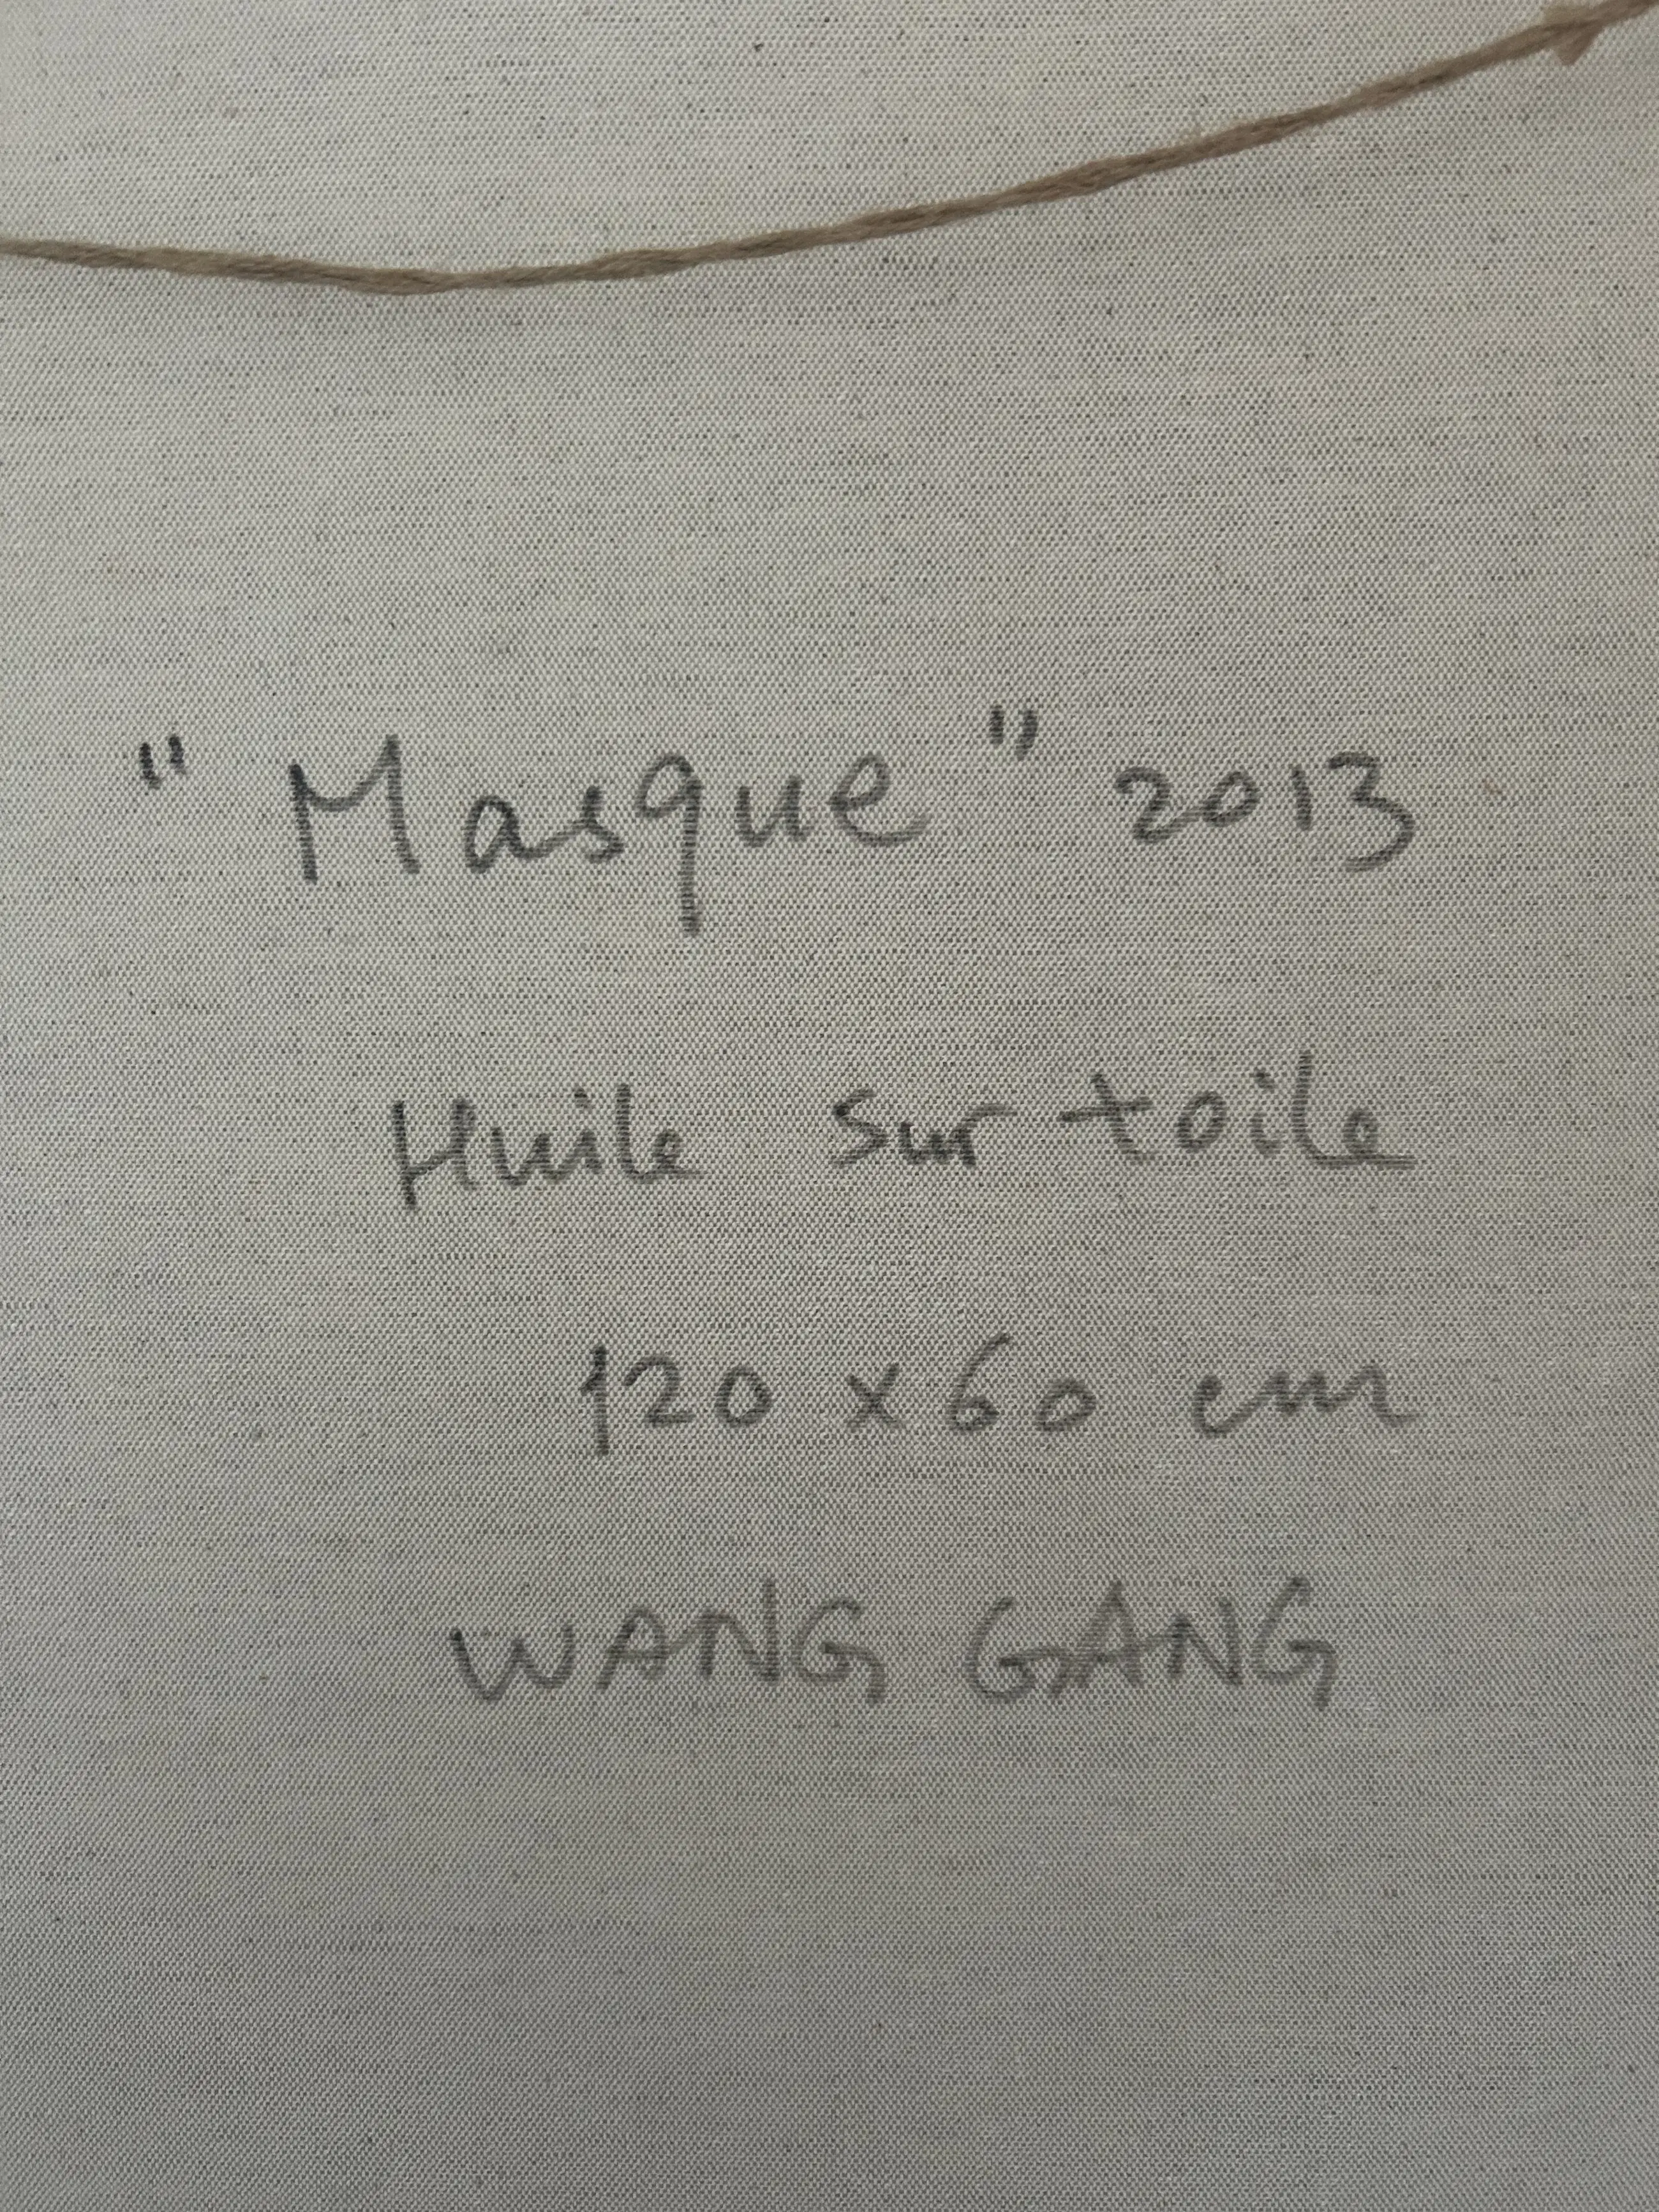 "Masque" 2013
Huile sur toile
120 x 60 cm
WANG GANG